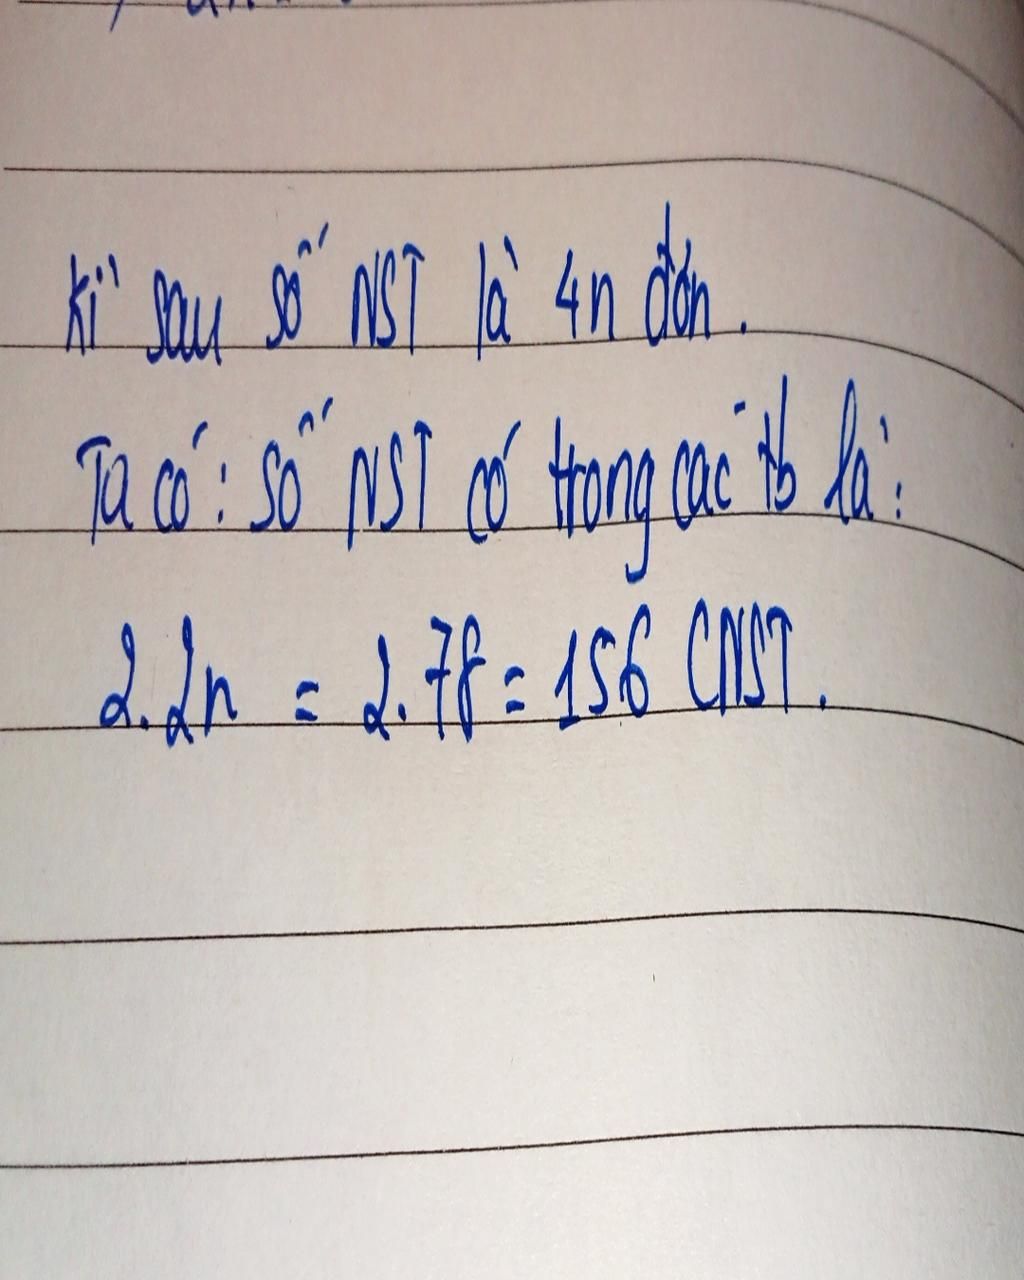 Kì sau số NST là 4n đơn.
Ta có: số NST có trong các tb là:
2.2n = 2.78 = 156 CNST.